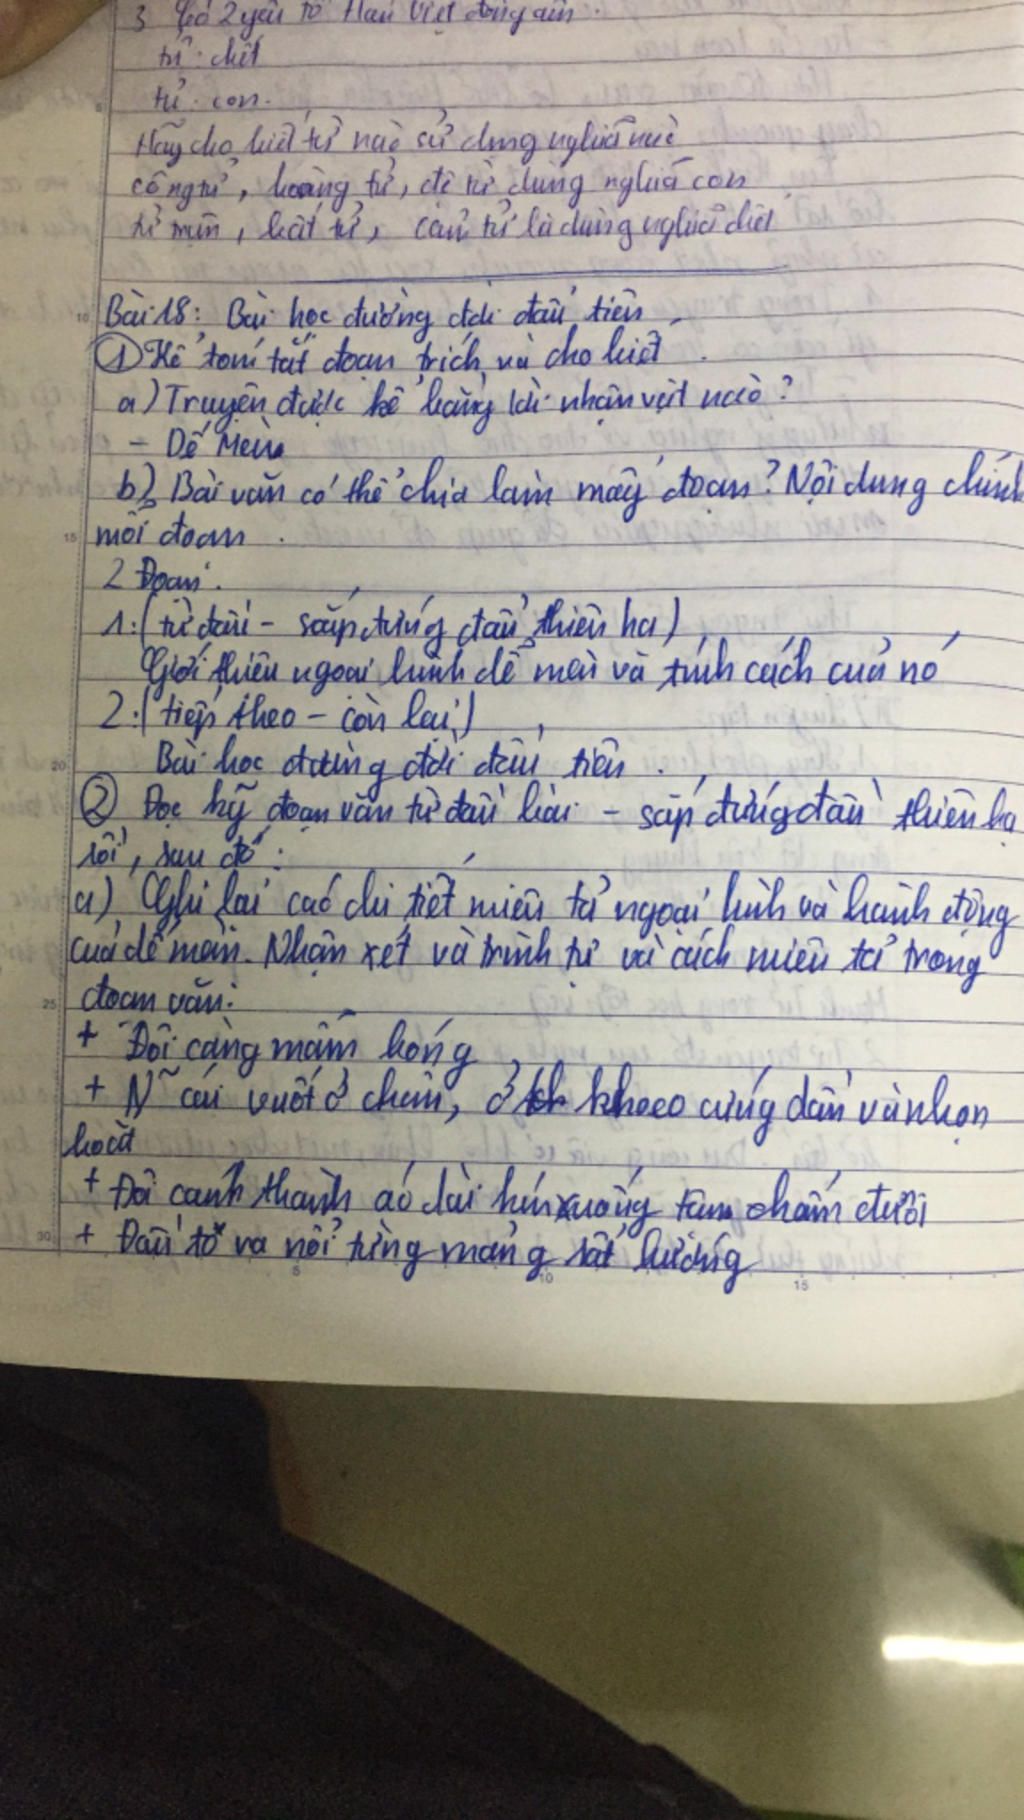 3 Có 2 yếu tố Hán Việt đồng âm.
tử: chết
tử: con.
Hãy cho biết từ nào sử dụng nghĩa nào
công tử, hoàng tử, đệ tử dùng nghĩa con
tử mìn, bất tử, cảm tử là dùng nghĩa chết
Bài 18: Bài học đường đời đầu tiên
① Kể tóm tắt đoạn trích và cho biết.
a) Truyện được kể bằng lời nhân vật nào?
- Dế Mèn
b) Bài văn có thể chia làm mấy đoạn? Nội dung chính
mỗi đoạn.
2 Đoạn:
1: (từ đầu - sắp đứng đầu thiên hạ)
Giới thiệu ngoại hình dế mèn và tính cách của nó
2: (tiếp theo - còn lại)
Bài học đường đời đầu tiên.
② Đọc kỹ đoạn văn từ đầu bài - sắp đứng đầu thiên hạ
rồi, sau đó:
a) Ghi lại các chi tiết miêu tả ngoại hình và hành động
của dế mèn. Nhận xét về trình tự và cách miêu tả trong
đoạn văn:
+ Đôi càng mẫm bóng
+ N~ cái vuốt ở chân, ở khoeo cứng dần và nhọn
hoắt
+ Đôi cánh thành áo dài kín xuống tận chấm đuôi
+ Đầu to và nổi từng mảng rất bướng